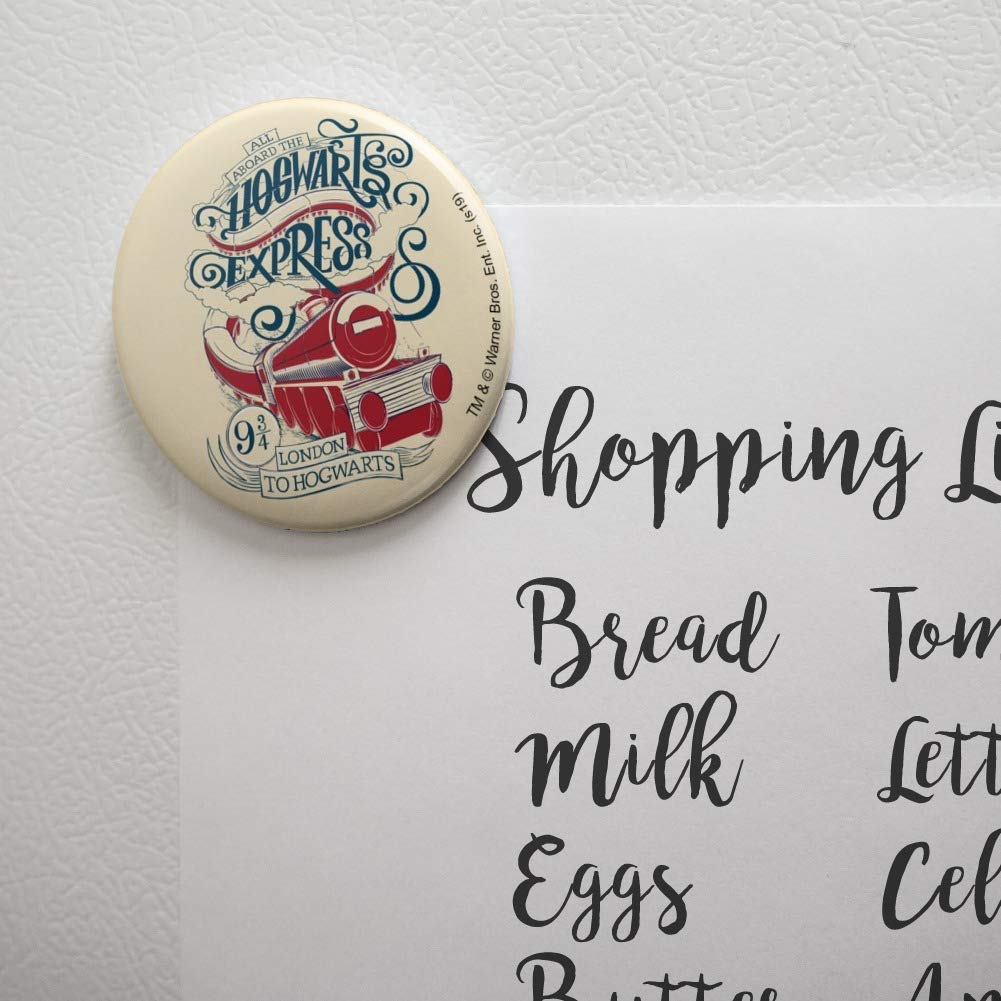 ALL
ABOARD THE
HOGWARTS
EXPRESS
9 3/4
LONDON
TO HOGWARTS
TM & © Warner Bros. Ent. Inc. (s19)
Shopping Li
Bread Tom
Milk Lett
Eggs Cel